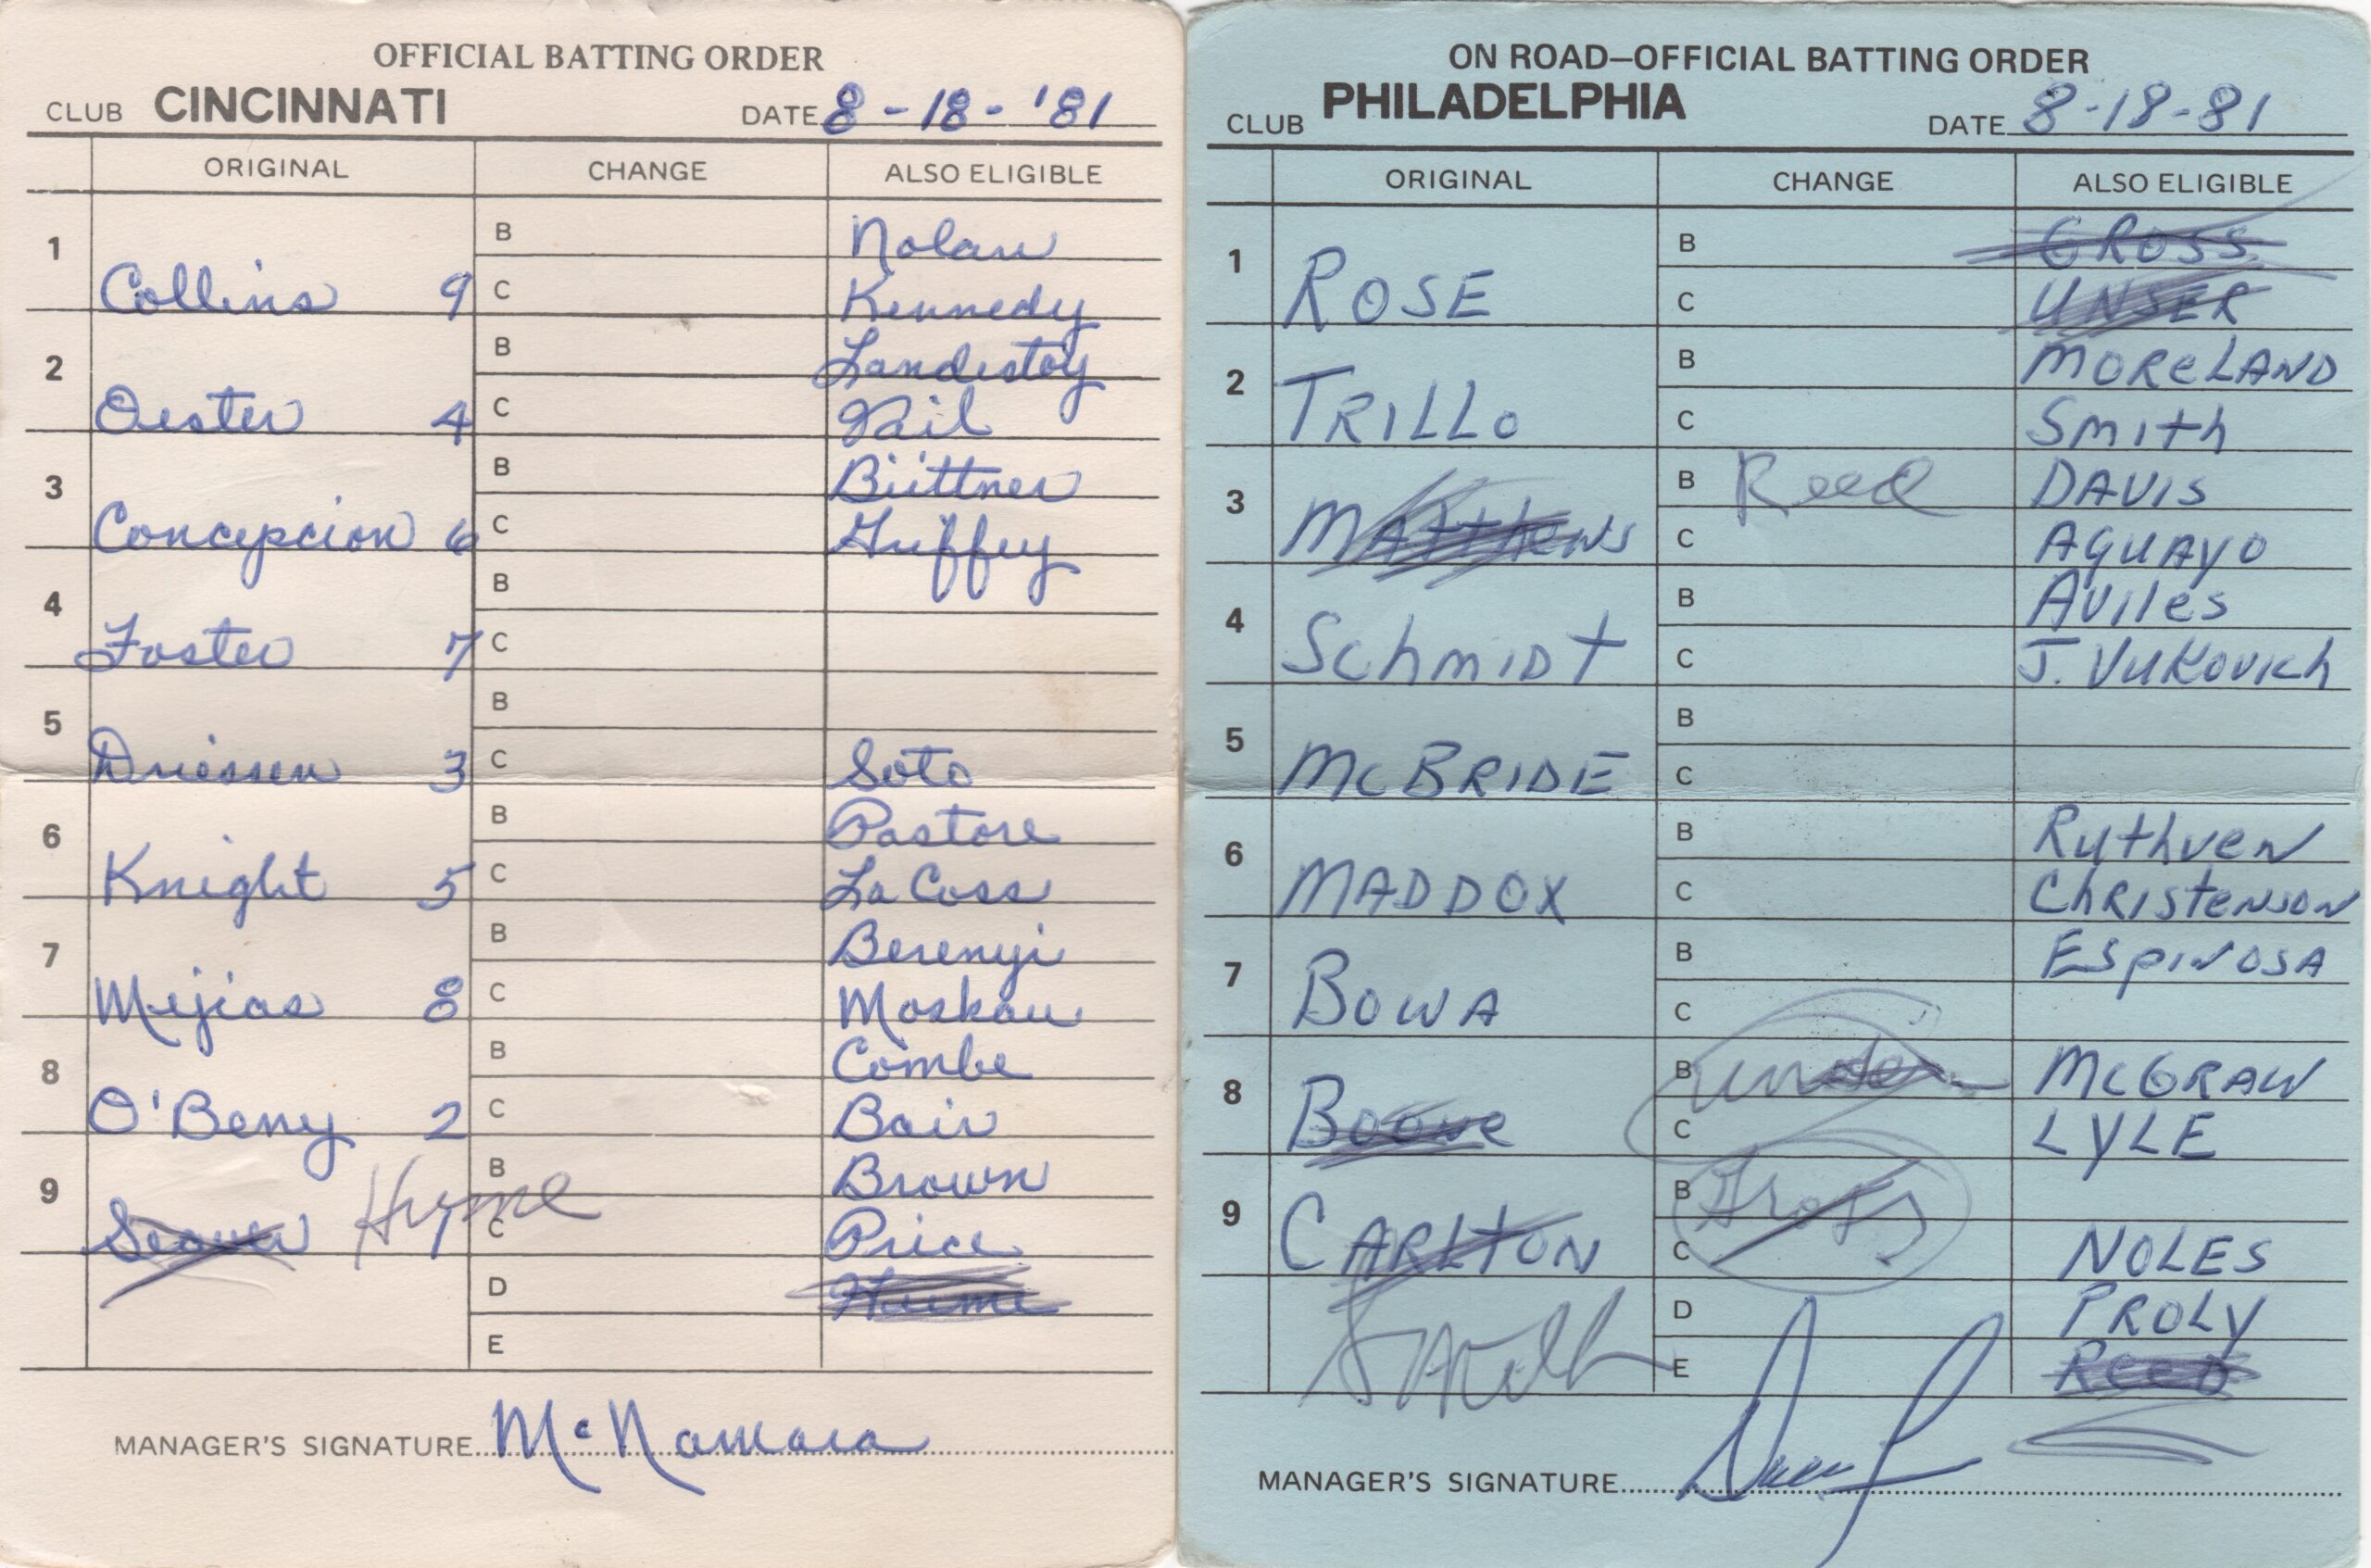 OFFICIAL BATTING ORDER
CLUB CINCINNATI DATE 8-18-'81
ORIGINAL CHANGE ALSO ELIGIBLE
1 Collins 9 B Nolan
C Kennedy
2 Oester 4 B Landestoy
C Vail
3 Concepcion 6 B Biittner
C Griffey
4 Foster 7 B
C
5 Driessen 3 B
C Soto
6 Knight 5 B Pastore
C LaCoss
7 Mejias 8 B Berenyi
C Moskau
8 O'Berry 2 B Combe
C Bair
9 Seaver 1 Hume B Brown
C Price
D Hume
E
MANAGER'S SIGNATURE McNamara
ON ROAD—OFFICIAL BATTING ORDER
CLUB PHILADELPHIA DATE 8-18-81
ORIGINAL CHANGE ALSO ELIGIBLE
1 ROSE B GROSS
C UNSER
2 TRILLO B MORELAND
C Smith
3 MATTHEWS B Reed DAVIS
C AGUAYO
4 Schmidt B AVILES
C J. VUKOVICH
5 McBRIDE B
C
6 MADDOX B Ruthven
C CHRISTENSON
7 BOWA B ESPINOSA
C
8 Boone B Unser McGRAW
C LYLE
9 CARLTON B Gross
C NOLES
Smith D PROLY
E REED
MANAGER'S SIGNATURE